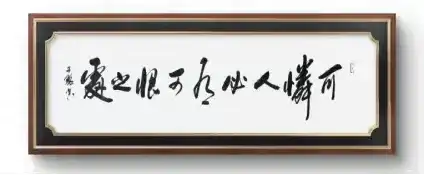 可憐人必有可恨之處